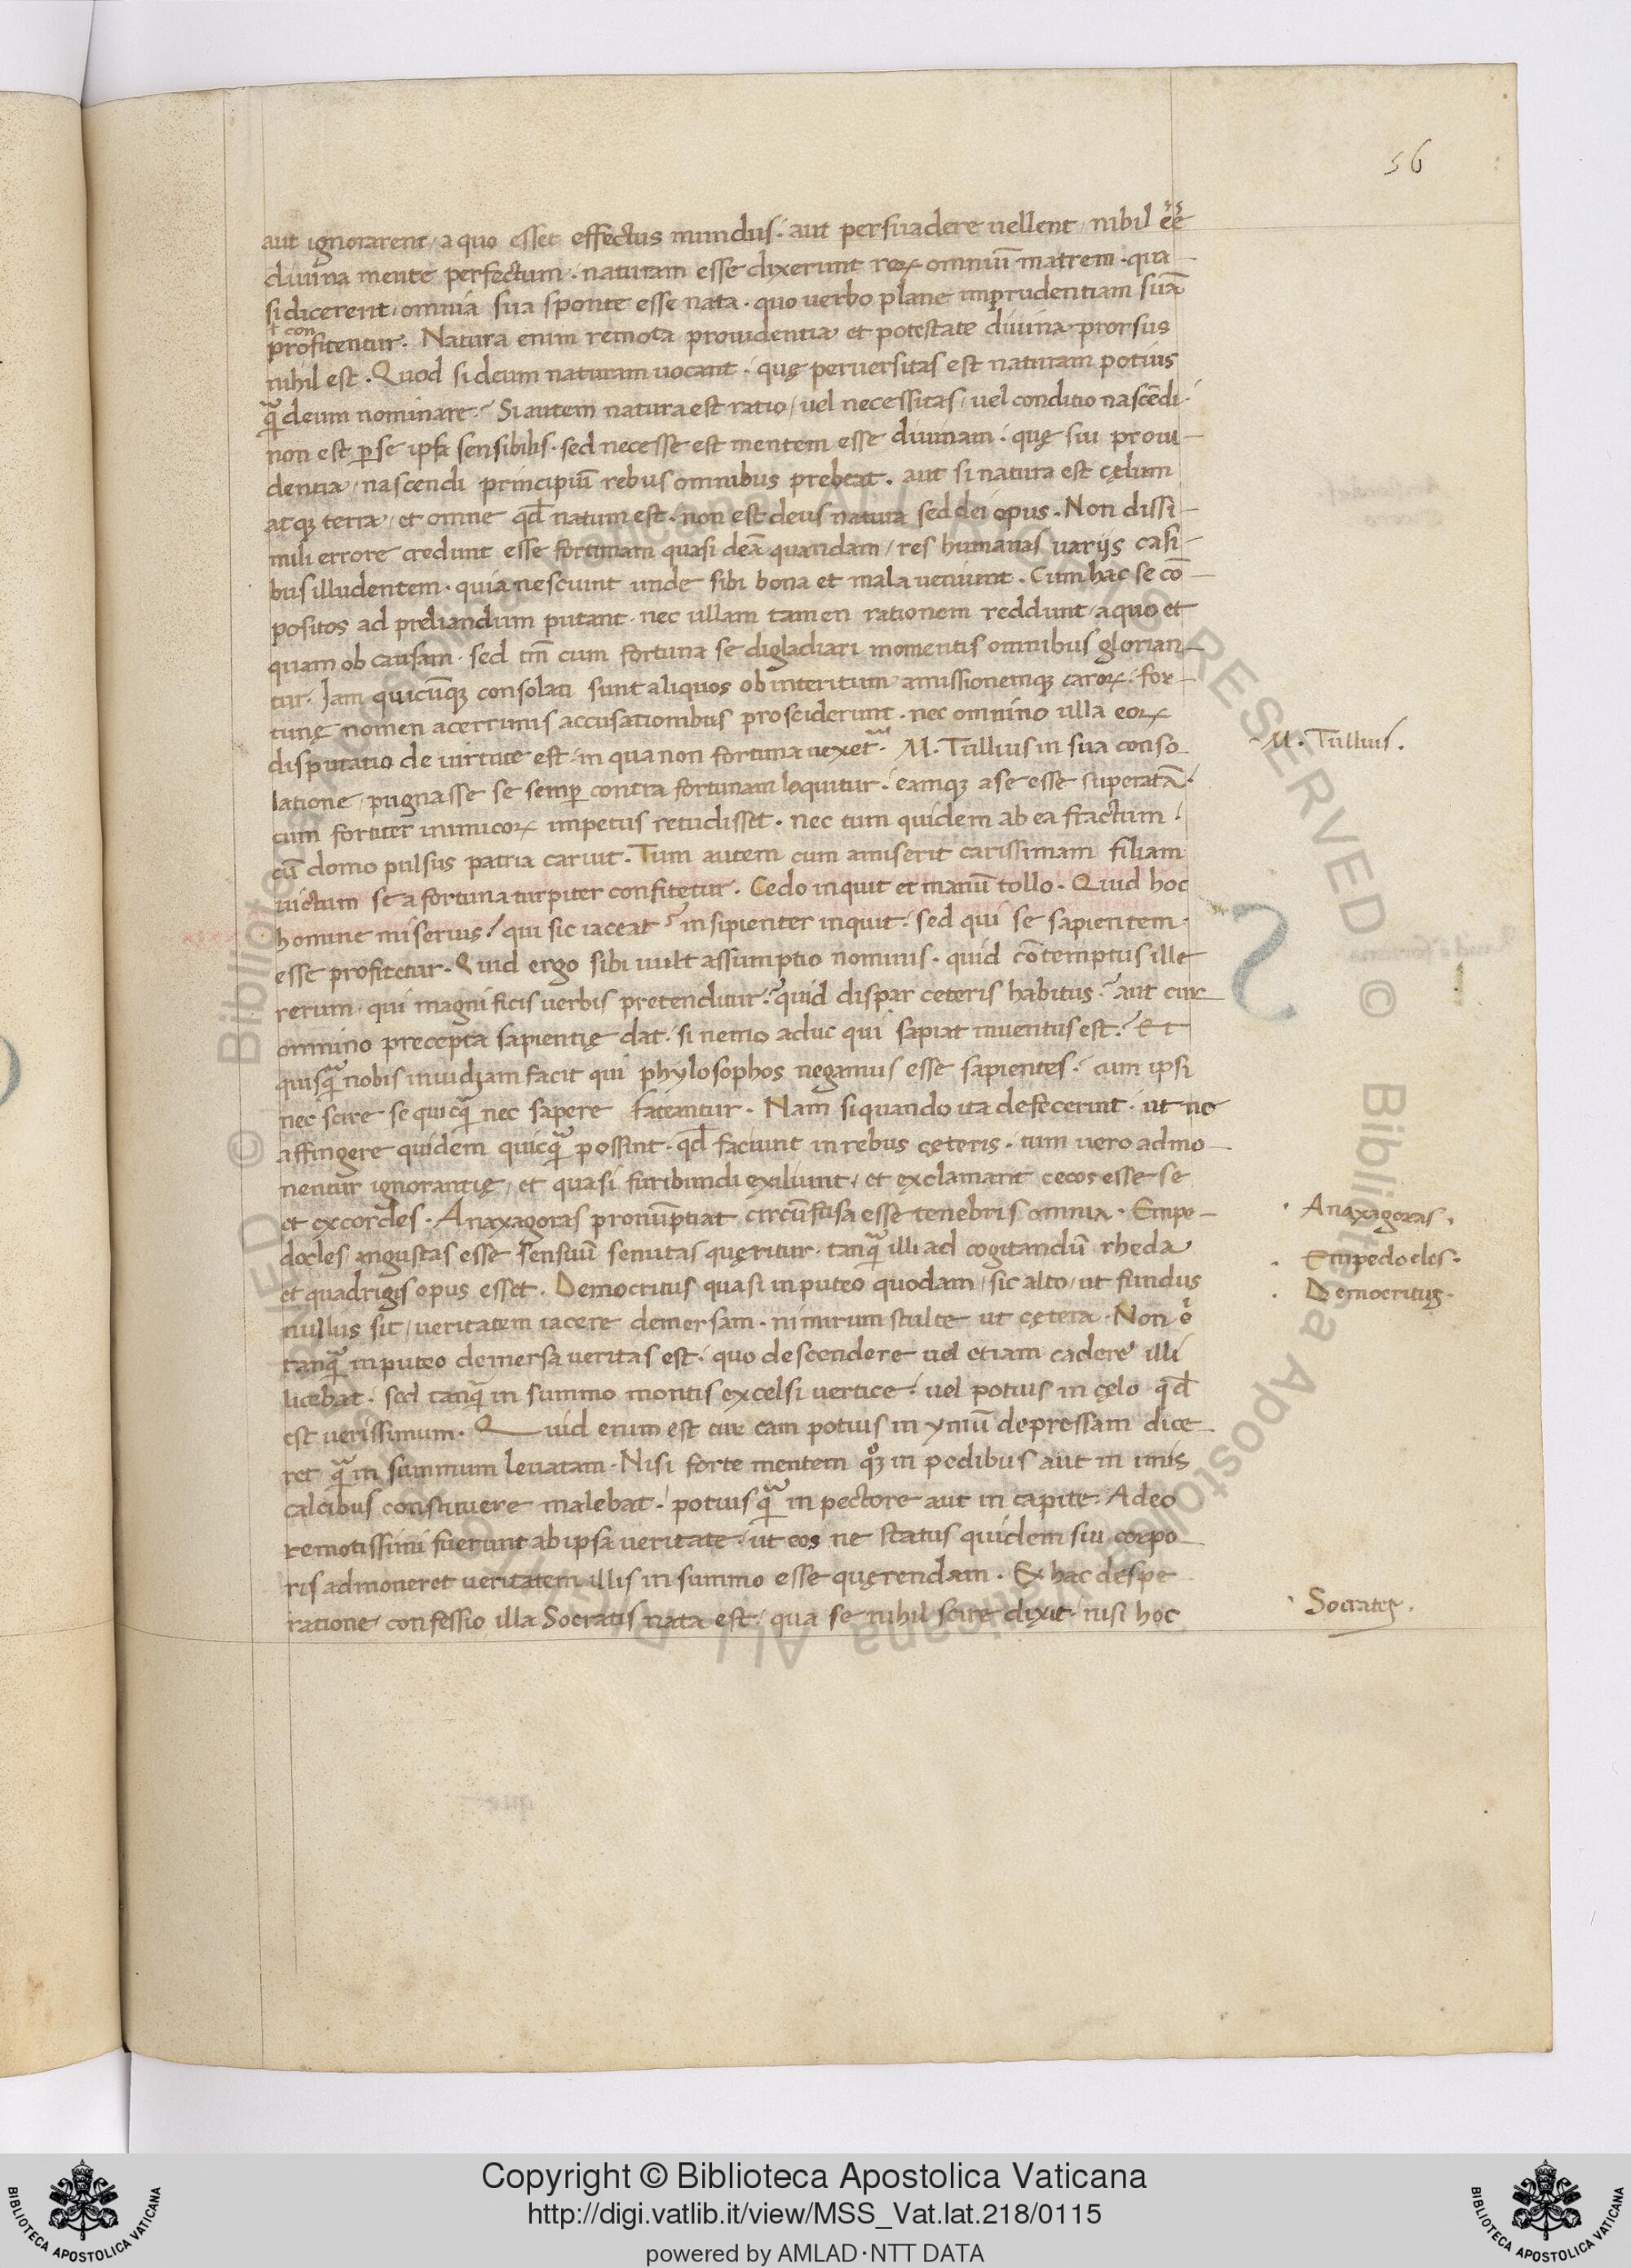 56
aut ignorarent / a quo esset effectus mundus · aut persuadere uellent / nihil eē
diuina mente perfectum · naturam esse dixerunt reꝝ omniū matrem · qua-
si dicerent / omnia sua sponte esse nata · quo uerbo plane imprudentiam suā
ł con
profitentur · Natura enim remota prouidentia et potestate diuina prorsus
nihil est · Quod si deum naturam uocant · quę peruersitas est naturam potius
qͣ̄ deum nominare? Si autem natura est ratio / uel necessitas / uel conditio nascēdi ·
non est ꝑ se ipsa sensibilis · sed necesse est mentem esse diuinam · quę sui proui-
dentia / nascendi principiū rebus omnibus prebeat · aut si natura est cęlum
atqꝫ terra / et omne qd̄ natum est · non est deus natura sed dei opus · Non dissi-
mili errore credunt esse fortunam quasi deā quandam / res humanas varijs casi-
bus illudentem · quia nesciunt unde sibi bona et mala ueniunt · Cum hac se cō-
positos ad preliandum putant · nec ullam tamen rationem reddunt / a quo et
quam ob causam · sed tm̄ cum fortuna se digladiari momentis omnibus glorian-
tur · Iam quicūqꝫ consolati sunt aliquos ob interitum amissionemqꝫ caroꝝ · for-
tunę nomen acerrimis accusationibus prosciderunt · nec omnino ulla eoꝝ
disputatio de uirtute est · in qua non fortuna uexetᷓ · M. Tullius in sua conso
latione / pugnasse se semꝑ contra fortunam loquitur · eamqꝫ a se esse superatā ·
cum fortiter inimicoꝝ impetus retudisset · nec tum quidem ab ea fractum ·
cū domo pulsus patria caruit · Tum autem cum amiserit carissimam filiam
uictum se a fortuna turpiter confitetur · Cedo inquit et manū tollo · Quid hoc
homine miserius? qui sic iaceat? insipienter inquit · sed qui se sapientem
esse profitetur · Quid ergo sibi uult assumptio nominis · quid cōtemptus ille
rerum · qui magnificis uerbis pretenditur? quid dispar ceteris habitus? aut cur
omnino precepta sapientię dat · si nemo aduc qui sapiat inuentus est? Et
quisqͣ̄ nobis inuidiam facit qui phylosophos negamus esse sapientes · cum ipsi
nec scire se quicqͣ̄ nec sapere fateantur · Nam si quando ita defecerint · ut ne
affingere quidem quicqͣ̄ possint · qd̄ faciunt in rebus cęteris · tum uero admo-
nentur ignorantię / et quasi furibundi exiliunt / et exclamant cecos esse se
et excordes · Anaxagoras pronūptiat circūfusa esse tenebris omnia · Empe-
docles angustas esse sensuū semitas quęritur · tanqͣ̄ illi ad cogitandū rheda
et quadrigis opus esset · Democritus quasi in puteo quodam / sic alto / ut fundus
nullus sit / ueritatem iacere demersam · nimirum stulte ut cętera · Non ē
tanqͣ̄ in puteo demersa ueritas est · quo descendere uel etiam cadere illi
licebat · sed tanqͣ̄ in summo montis excelsi uertice · uel potius in cęlo qd̄
est uerissimum · Quid enim est cur eam potius in ymū depressam dice-
ret qͣ̄ in summum leuatam · Nisi forte mentem qꝫ in pedibus aut in imis
calcibus constituere malebat · potius qͣ̄ in pectore aut in capite · Adeo
remotissimi fuerunt ab ipsa ueritate · ut eos ne status quidem sui corpo-
ris admoneret ueritatem illis in summo esse quęrendam · Ex hac despe
ratione confessio illa Socratis nata est · qua se nihil scire dixit · nisi hoc
M. Tullius.
Anaxagoras.
Empedocles.
Democritus.
Socrates.
Copyright © Biblioteca Apostolica Vaticana
http://digi.vatlib.it/view/MSS_Vat.lat.218/0115
powered by AMLAD·NTT DATA
BIBLIOTECA APOSTOLICA VATICANA
BIBLIOTECA APOSTOLICA VATICANA